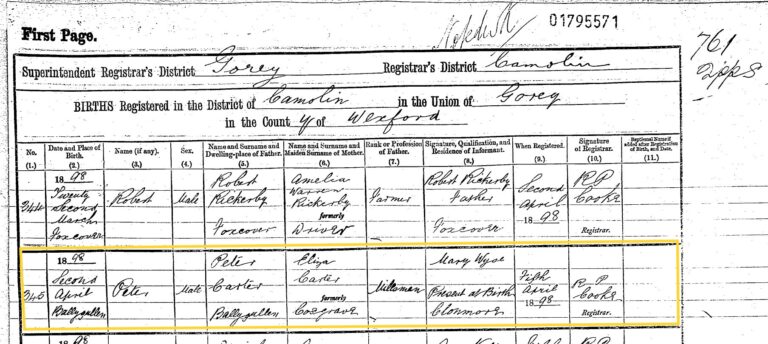 01795571
First Page.
761
2pps
Superintendent Registrar's District Gorey Registrar's District Camolin
BIRTHS Registered in the District of Camolin in the Union of Gorey
in the County of Wexford
No. Date and Place of Birth. Name (if any). Sex. Name and Surname and Dwelling-place of Father. Name and Surname and Maiden Surname of Mother. Rank or Profession of Father. Signature, Qualification, and Residence of Informant. When Registered. Signature of Registrar. Baptismal Name if added after Registration of Birth, and Date.
(1.) (2.) (3.) (4.) (5.) (6.) (7.) (8.) (9.) (10.) (11.)
1898 Robert Amelia Robert Rickerby Second R P
Twenty Warren
344 Second Robert Male Rickerby Rickerby Farmer Father April Cooke
March formerly 1898
Foxcover Foxcover Driver Foxcover Registrar.
1898 Peter Eliza Mary Wyse Fifth
Second Carter Carter April R P
345 April Peter Male formerly Milesman Present at Birth 1898 Cooke
Ballygullen Ballygullen Cosgrave Clonmore Registrar.
1898